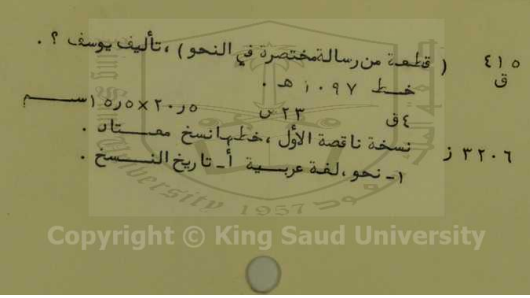 ٤١٥ ( قطعة من رسالة مختصرة في النحو ) ، تأليف يوسف ؟ .
ق خط ١٠٩٧ هـ .
٤ق ٢٣ س ٢٠٫٥×١٥٫٥ سم
٣٢٠٦ ز نسخة ناقصة الأول ، خطها نسخ معتاد .
١- نحو ، لغة عربية أ- تاريخ النسخ .
University 1957
Copyright © King Saud University